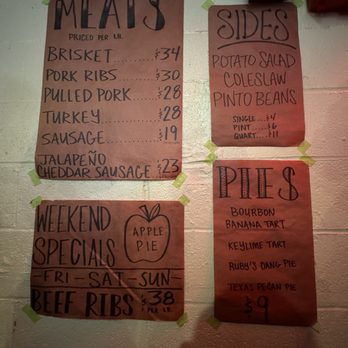 MEATS
PRICED PER LB.
BRISKET.......$34
PORK RIBS.....$30
PULLED PORK...$28
TURKEY........$28
SAUSAGE.......$19
JALAPEÑO
CHEDDAR SAUSAGE..$23
SIDES
POTATO SALAD
COLESLAW
PINTO BEANS
SINGLE....$4
PINT....$6
QUART...$11
WEEKEND
SPECIALS
APPLE
PIE
-FRI-SAT-SUN-
BEEF RIBS $38
PER LB.
PIES
BOURBON
BANANA TART
KEYLIME TART
RUBY'S DANG PIE
TEXAS PECAN PIE
$9